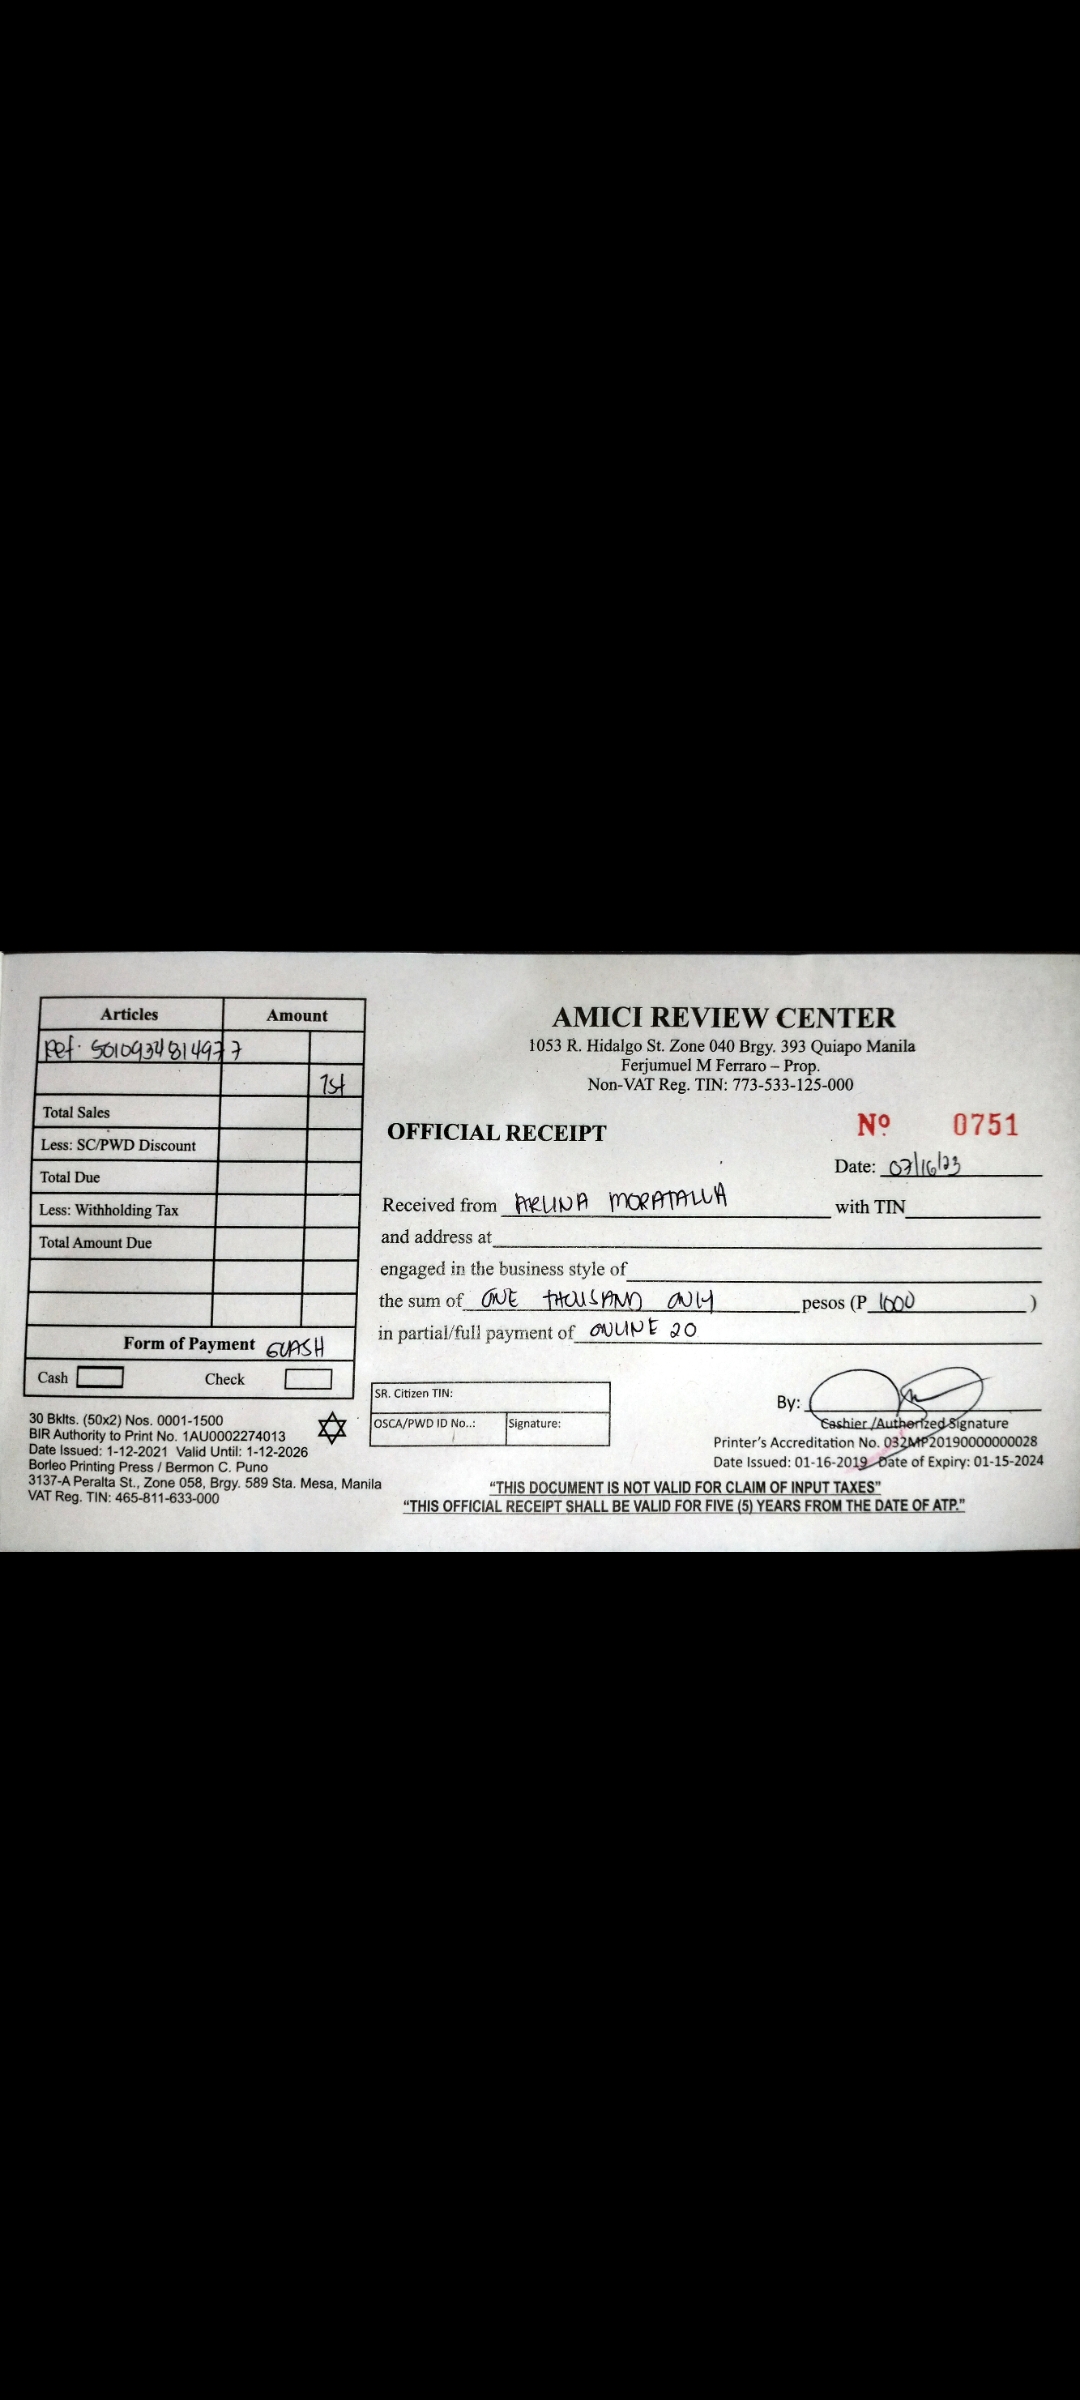 Articles Amount
Ref. 5010934814977
1st
Total Sales
Less: SC/PWD Discount
Total Due
Less: Withholding Tax
Total Amount Due
Form of Payment GCASH
Cash Check
30 Bklts. (50x2) Nos. 0001-1500
BIR Authority to Print No. 1AU0002274013
Date Issued: 1-12-2021 Valid Until: 1-12-2026
Borleo Printing Press / Bermon C. Puno
3137-A Peralta St., Zone 058, Brgy. 589 Sta. Mesa, Manila
VAT Reg. TIN: 465-811-633-000
AMICI REVIEW CENTER
1053 R. Hidalgo St. Zone 040 Brgy. 393 Quiapo Manila
Ferjumuel M Ferraro – Prop.
Non-VAT Reg. TIN: 773-533-125-000
OFFICIAL RECEIPT
Nº 0751
Date: 07/16/23
Received from ARLINA MORATALLA with TIN
and address at
engaged in the business style of
the sum of ONE THOUSAND ONLY pesos (P 1000 )
in partial/full payment of ONLINE 20
SR. Citizen TIN:
OSCA/PWD ID No..: Signature:
By:
Cashier /Authorized Signature
Printer's Accreditation No. 032MP20190000000028
Date Issued: 01-16-2019 Date of Expiry: 01-15-2024
"THIS DOCUMENT IS NOT VALID FOR CLAIM OF INPUT TAXES"
"THIS OFFICIAL RECEIPT SHALL BE VALID FOR FIVE (5) YEARS FROM THE DATE OF ATP."